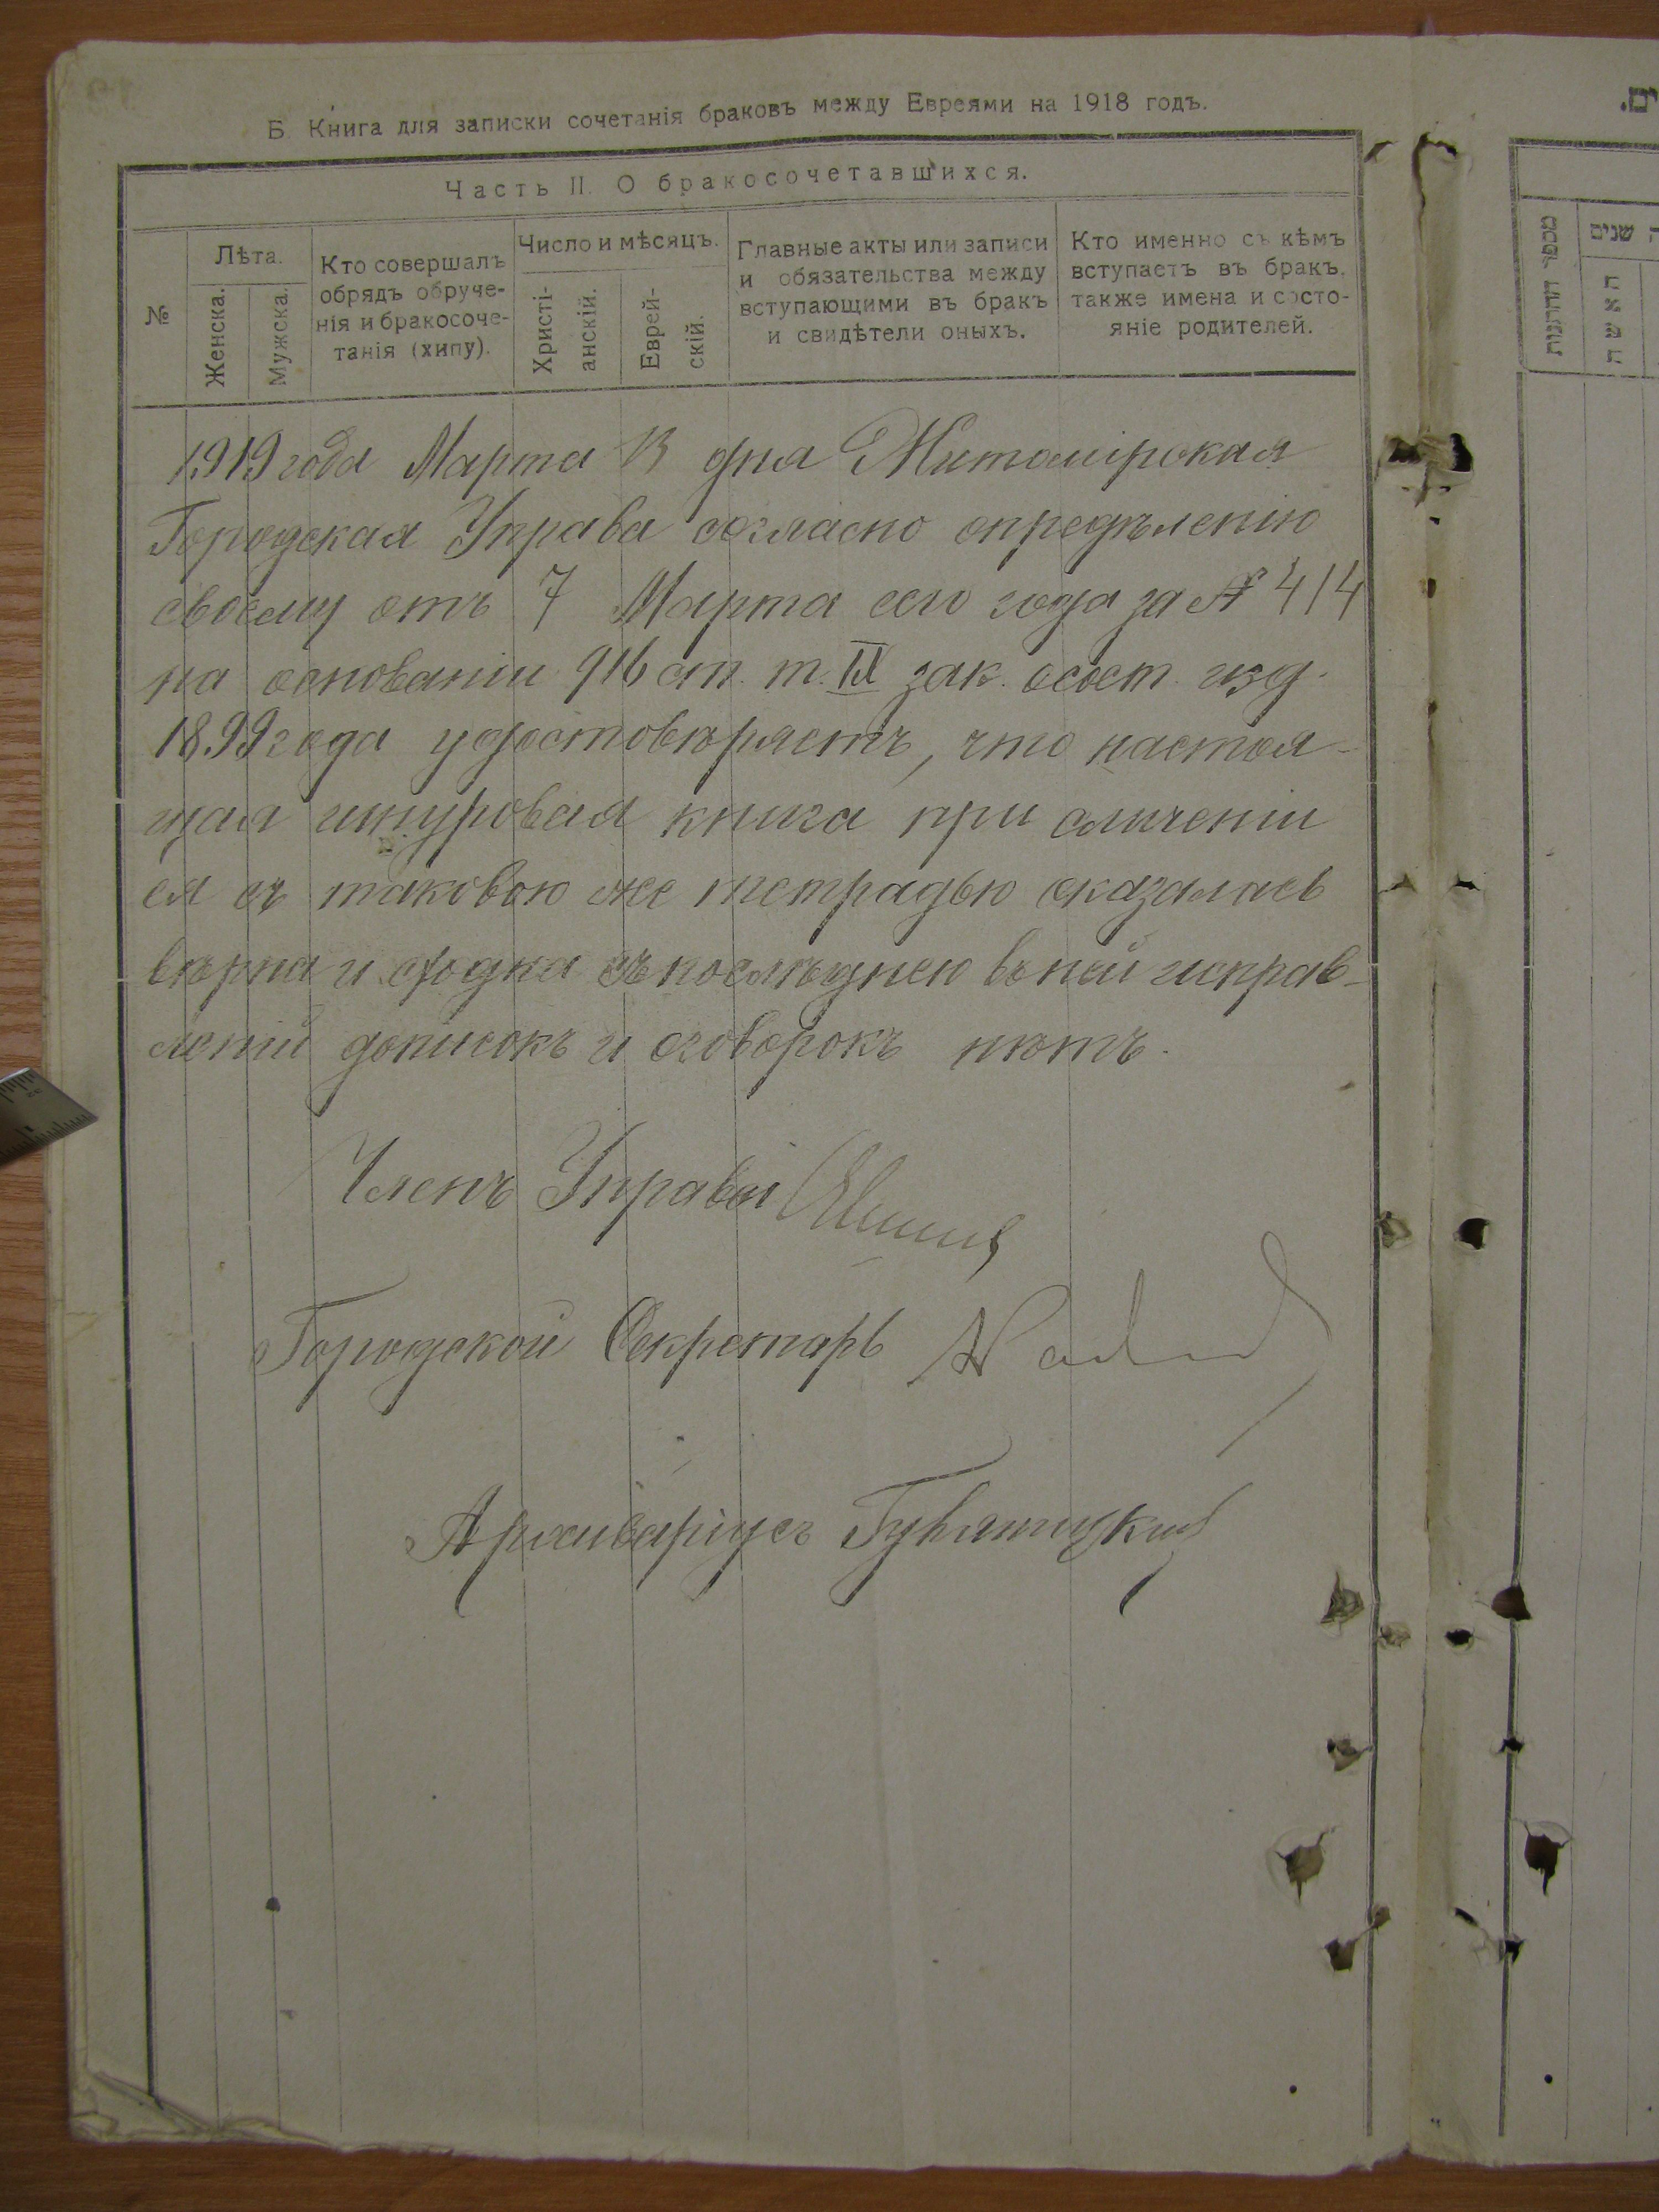 Б. Книга для записки сочетанія браковъ между Евреями на 1918 годъ.
Часть II. О бракосочетавшихся.
№
Лѣта.
Женска.
Мужска.
Кто совершалъ
обрядъ обруче-
нія и бракосоче-
танія (хипу).
Число и мѣсяцъ.
Христі-
анскій.
Еврей-
скій.
Главные акты или записи
и обязательства между
вступающими въ бракъ
и свидѣтели оныхъ.
Кто именно съ кѣмъ
вступаетъ въ бракъ,
также имена и состо-
яніе родителей.
1919 года Марта 13 дня Житомірская
Городская Управа согласно опредѣленію
своему отъ 7 Марта сего года за № 414
на основаніи 916 ст. т. IX зак. о сост. изд.
1899 года удостовѣряетъ, что настоя-
щая шнуровая книга при сличеніи
ея съ таковою же тетрадью оказалась
вѣрна и сходна съ послѣднею въ ней исправ-
леній дописокъ и оговорокъ нѣтъ.
Членъ Управы
Городской Секретарь
Архиваріусъ
ים.
מספר
שנים
האשה